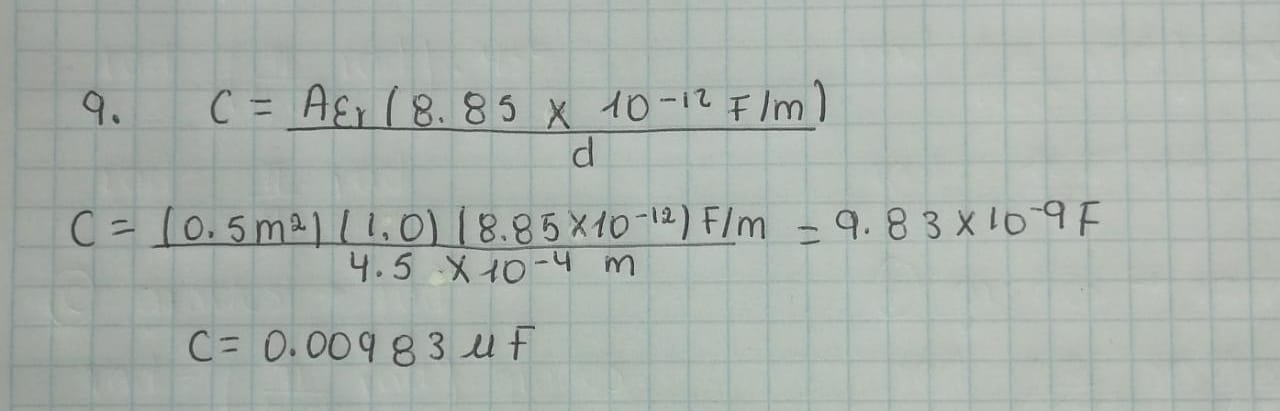 9. C = Aεr (8.85 x 10⁻¹² F/m) / d
C = (0.5m²) (1.0) (8.85x10⁻¹²) F/m / 4.5 x10⁻⁴ m = 9.83x10⁻⁹F
C= 0.00983 μF